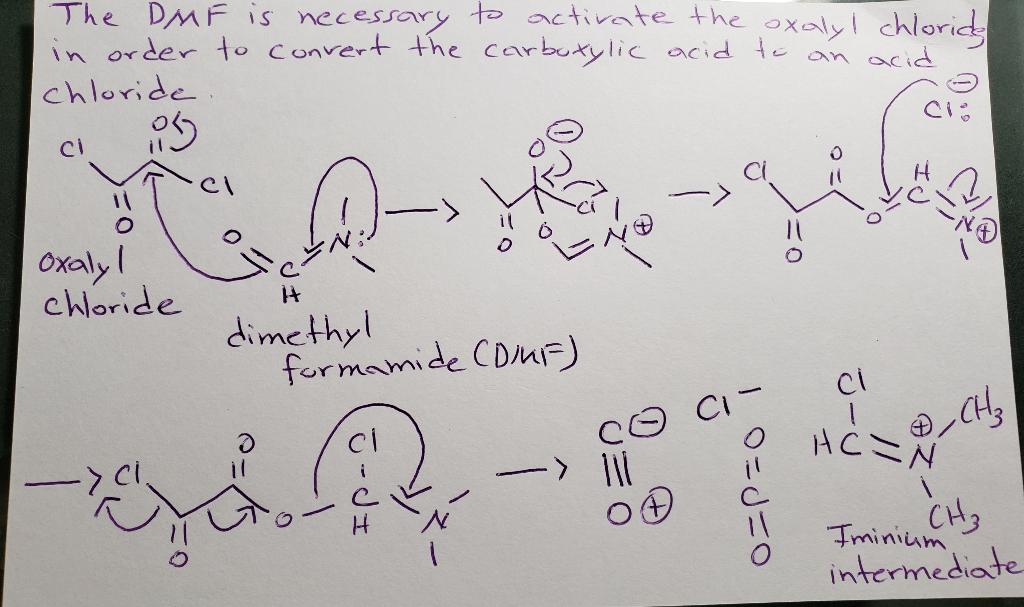 The DMF is necessary to activate the oxalyl chloride
in order to convert the carboxylic acid to an acid
chloride.
O
Cl
Cl
O
O
C
H
N:
oxalyl
chloride
dimethyl
formamide (DMF)
O ⊖
Cl
O
O
N ⊕
⊖
Cl:
Cl
O
H
C
O
N ⊕
O
Cl
O
Cl
O
C
H
N
O
C ⊖
O ⊕
Cl −
O
C
O
Cl
HC
⊕
N
CH3
CH3
Iminium
intermediate